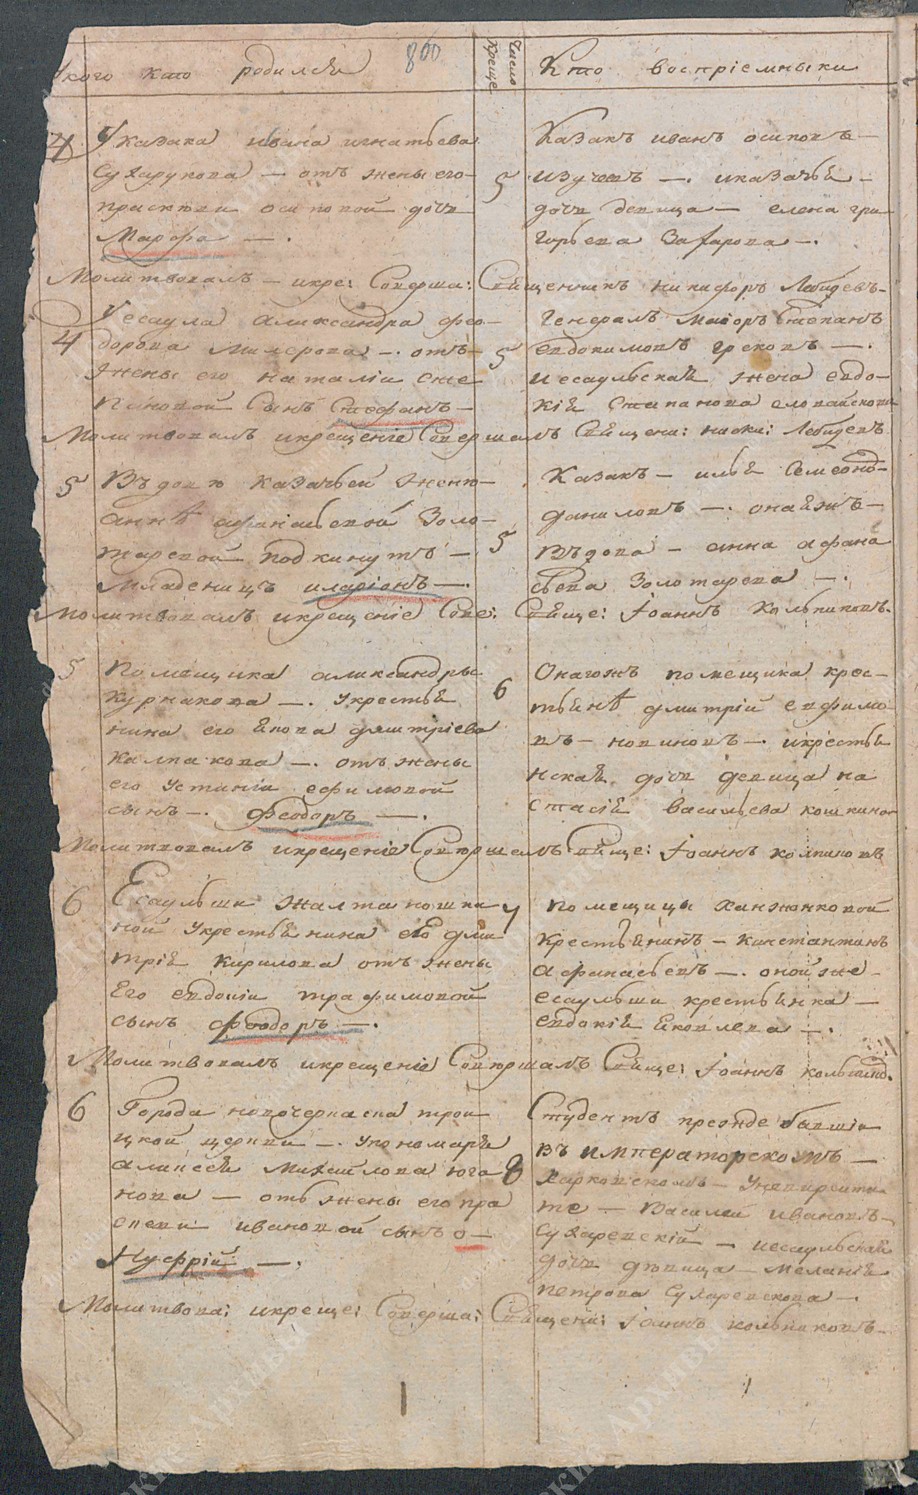 У кого кто родился 800
Число Креще
Кто воспріемныки
4 У казака ивана игнатьева
Сухарукова — отъ жены его
прасковьи осиповой дочь
Марфа —.
5
Казакъ иванъ осиповъ —
— . иказачья —
дочь девица — елена гри
горьева Захарова —.
Молитвовалъ — икре: Соверша: Священникъ никифоръ Лебедевъ
4 У есаула александра фео—
дорова Милерова —. отъ
жены его наталіи сте
пановой Сынъ Стефанъ —
5
Генералъ Маіоръ Степанъ
евдокимовъ грековъ —.
и есаульская жена евдо—
кія степанова
Молитвовалъ икрещеніе Совершалъ Священ: ники: Лебедевъ
5 Въдовю казачьей жены—
аннѣ афанасьевой Золо—
таревой подкинутъ —
младенецъ иларіонъ —.
5
Казакъ — илья Семеоно—
даниловъ —. онаяжъ —
въдова — анна афана
сьева Золотарева —.
Молитвовалъ икрещеніе Сове: Свяще: Іоаннъ Колпиковъ.
5 Помещика александры
Курнакова —. Укрестья
нина его якова дмитріева
калпакова —. отъ жены
его Устиніи ефимовой
сынъ —. Феодоръ —.
6
Онагожъ помещика крес—
тьянѣ дмитрій ефимо
въ — новиковъ —. икрестья
нская дочь девица на
стасія васильева кошкина
Молитвовалъ икрещеніе Совершалъ Свяще: Іоаннъ колпиковъ
6 Есаульши жалтаношки
ной Укрестьянина его дми
трія кирилова отъ жены
его евдокіи трафимовой
сынъ феодоръ —.
7
помещицы ханжонковой
крестьянинъ — константинъ
афанасьевъ —. оной же —
есаульши крестьянка —
евдокія яковлева —.
Молитвовалъ икрещеніе Совершалъ Свяще: Іоаннъ
6 Города новочеркаска трои
цкой церкви —. Упономаря
алексея Михайлова юга
нова — отъ жены его пра
сковьи ивановой сынъ о—
Нуфрій —.
8
Студентъ преонде бывши
въ императорскомъ —
харковскомъ — Университи
те — Василей ивановъ
Сухаревскій — иесаульская
дочь дѣвица — Меланія
петрова Сухаревскова —.
Молитвова: икреще: Соверша: Священ: Іоаннъ колпиковъ